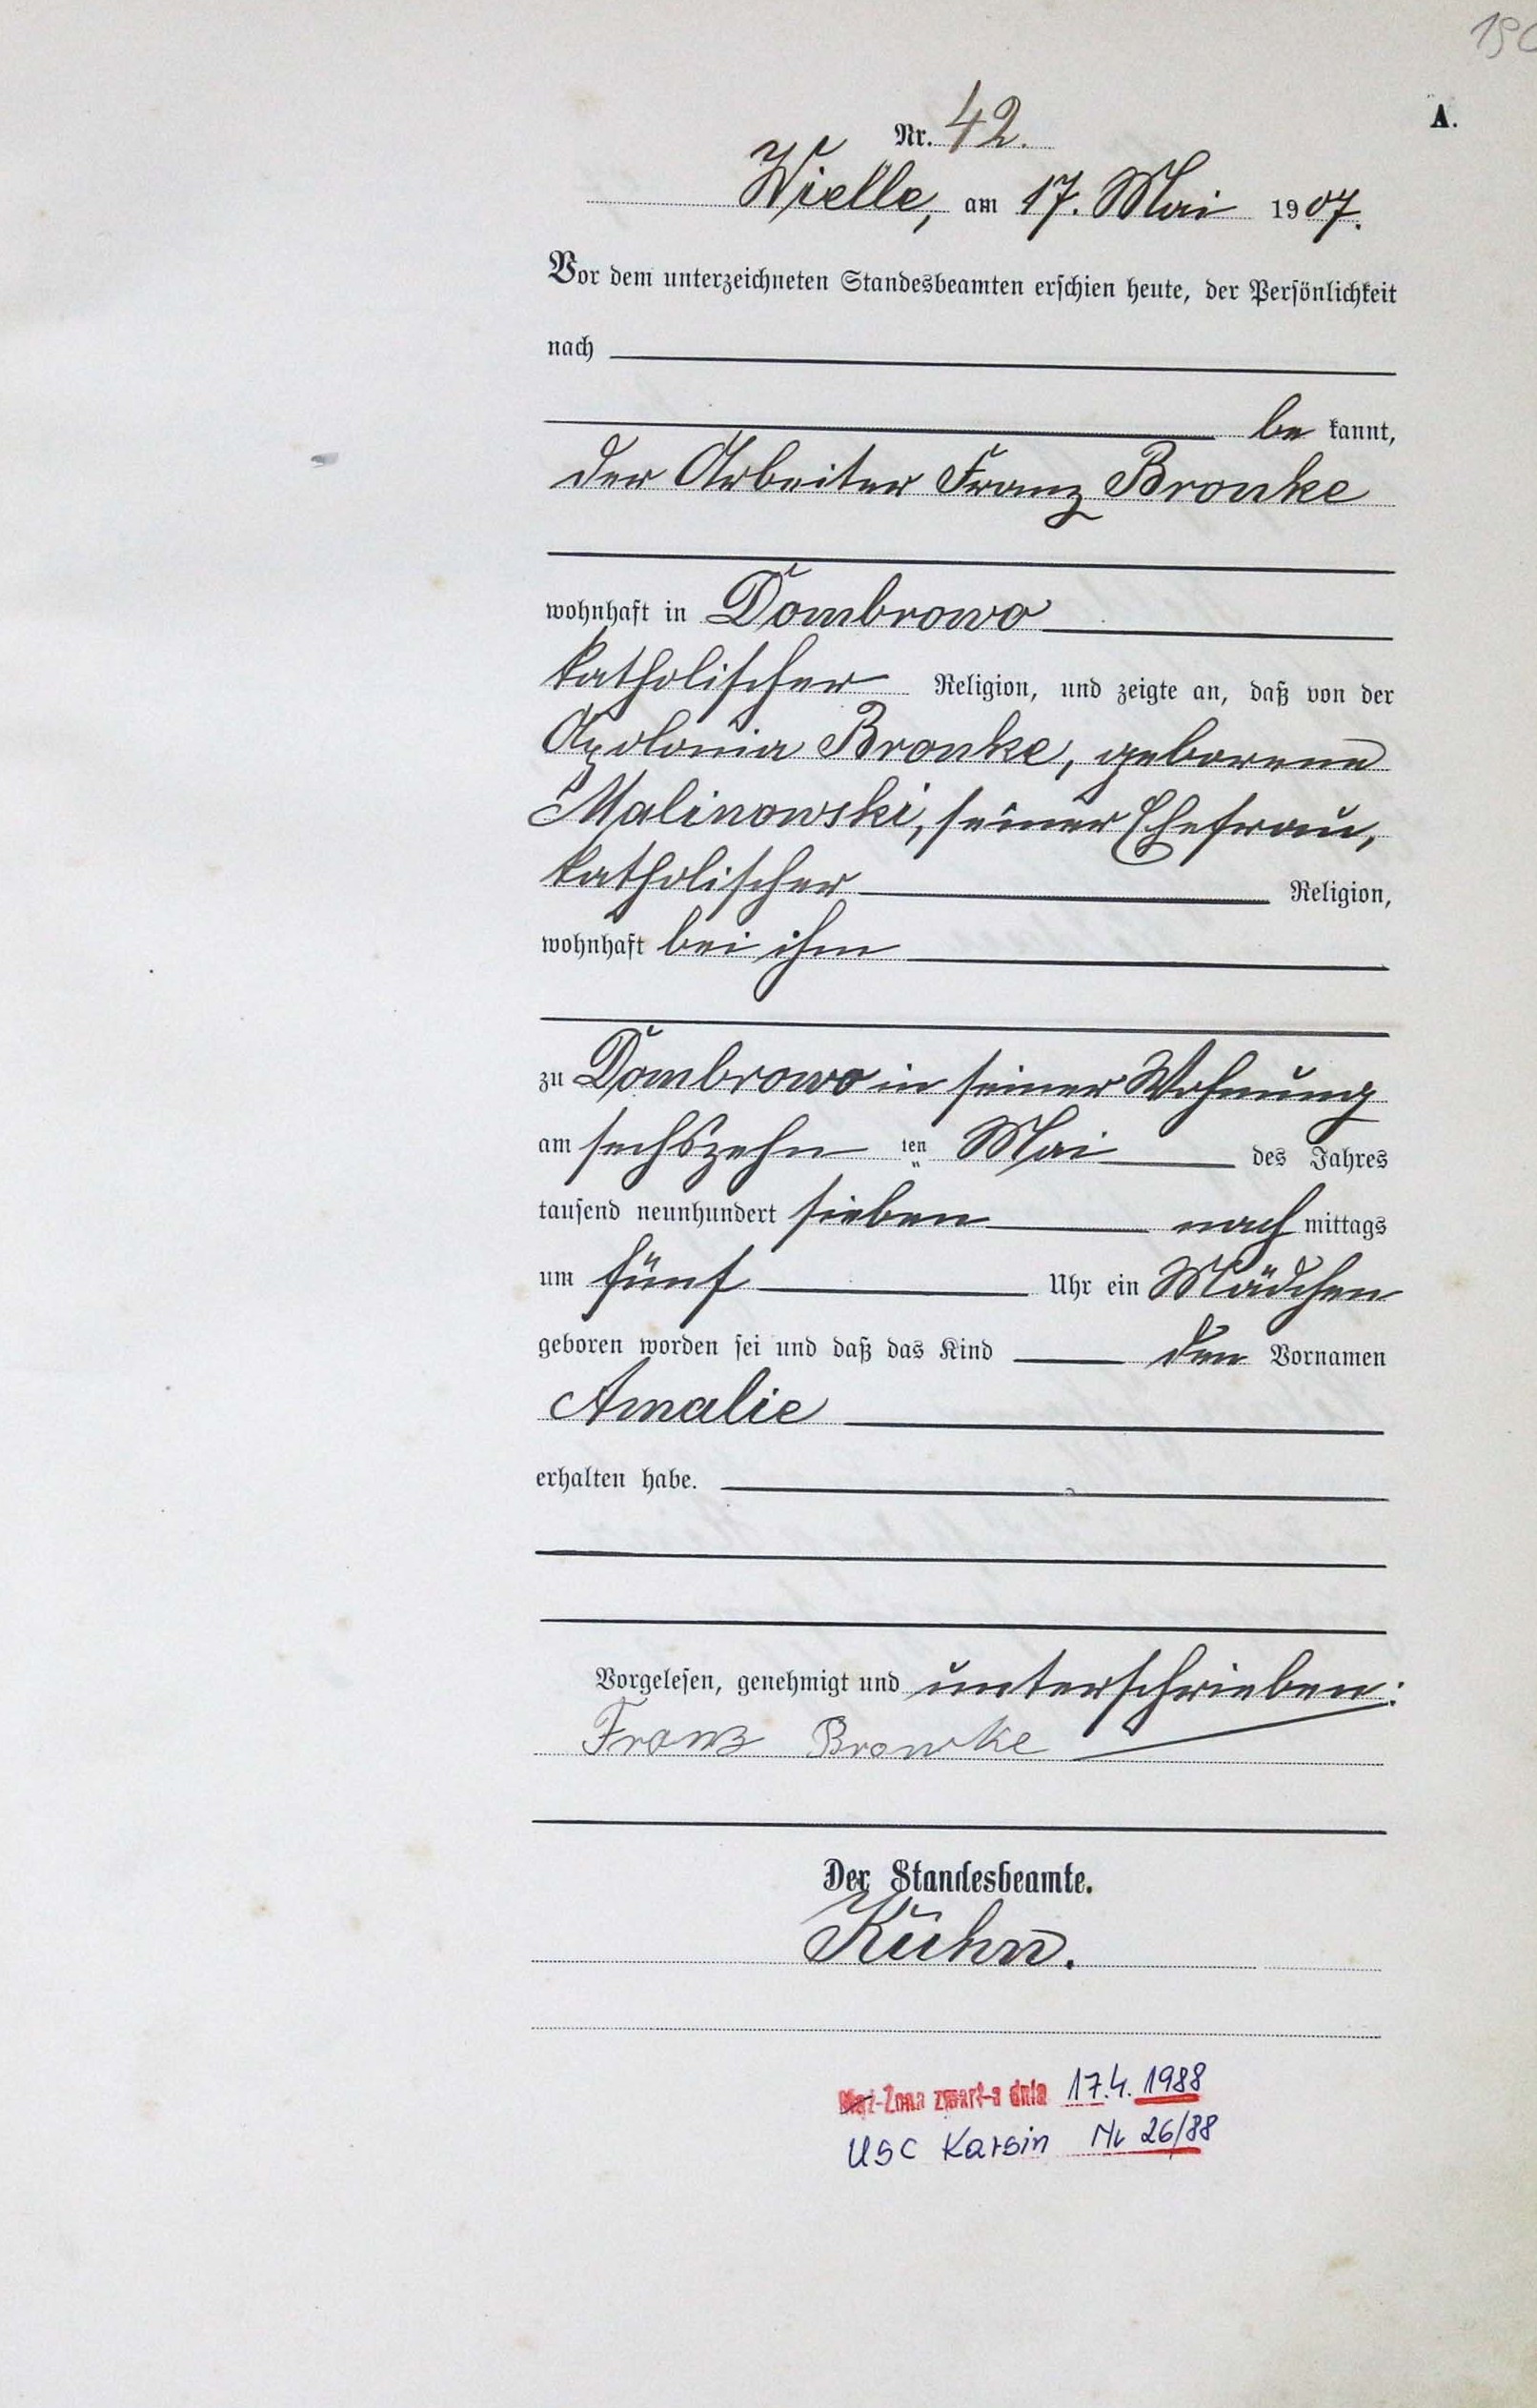 190
A.
Nr. 42.
Wielle, am 17. Mai 1907.
Vor dem unterzeichneten Standesbeamten erschien heute, der Persönlichkeit
nach
be kannt,
der Arbeiter Franz Bronke
wohnhaft in Dombrowo
katholischer Religion, und zeigte an, daß von der
Apolonia Bronke, geborene
Malinowski, seiner Ehefrau,
katholischer Religion,
wohnhaft bei ihm
zu Dombrowo in seiner Wohnung
am sechszehn ten Mai des Jahres
tausend neunhundert sieben nach mittags
um fünf Uhr ein Mädchen
geboren worden sei und daß das Kind den Vornamen
Amalie
erhalten habe.
Vorgelesen, genehmigt und unterschrieben:
Franz Bronke
Der Standesbeamte.
Kühn.
Mąż-Żona zmarł-a dnia 17.4.1988
USC Karsin Nr 26/88